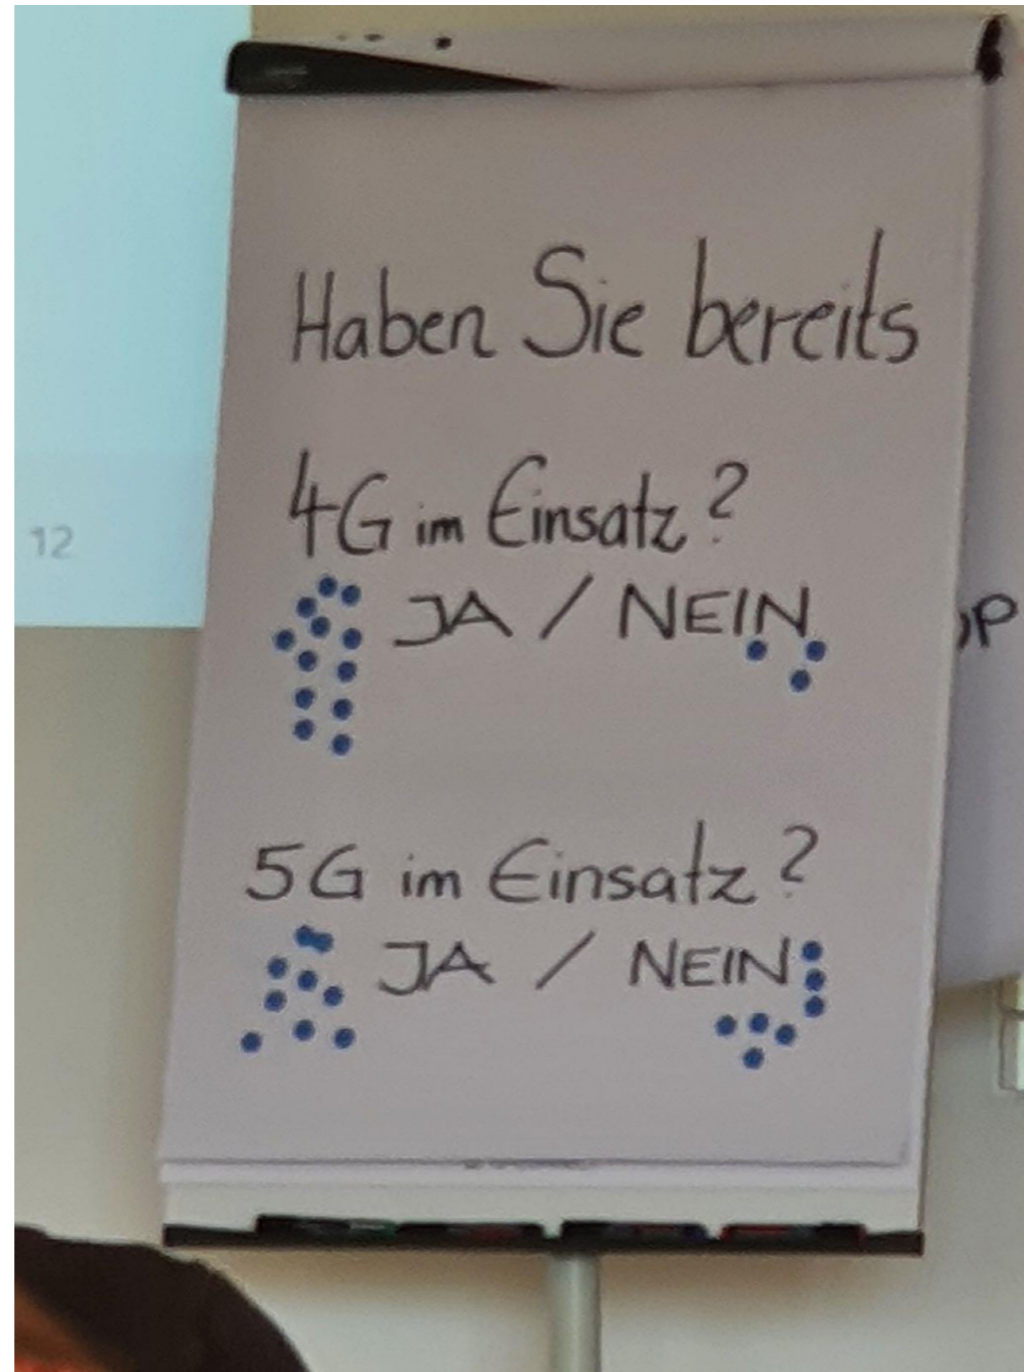 Haben Sie bereits
4G im Einsatz?
JA / NEIN
5G im Einsatz?
JA / NEIN
12